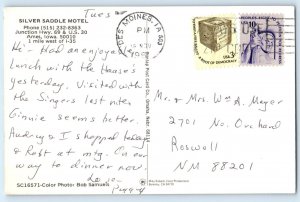 Tues
SILVER SADDLE MOTEL
Phone (515) 232-8363
Junction Hwy. 69 & U.S. 30
Ames, Iowa 50010
1 mile west of I-35
Hi - Had an enjoyable
lunch with the House's
yesterday. Visited with
the Singers last nite.
Ginnie seems better.
Audrey & I shopped today
& Robt at mtg. On our
way to dinner now
Love -
Peggy
SC16571-Color Photo: Bob Samuels
DES MOINES, IA 503
PM
Mr. & Mrs. Wm A. Meyer
2701 No. Orchard
Roswell
NM 88201